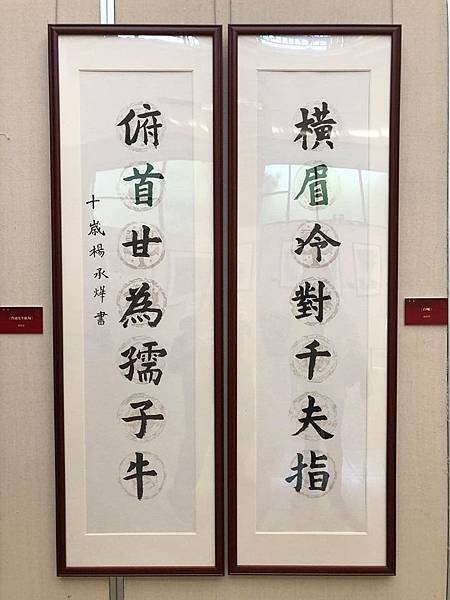 橫眉冷對千夫指
俯首甘為孺子牛
十歲楊承燁書